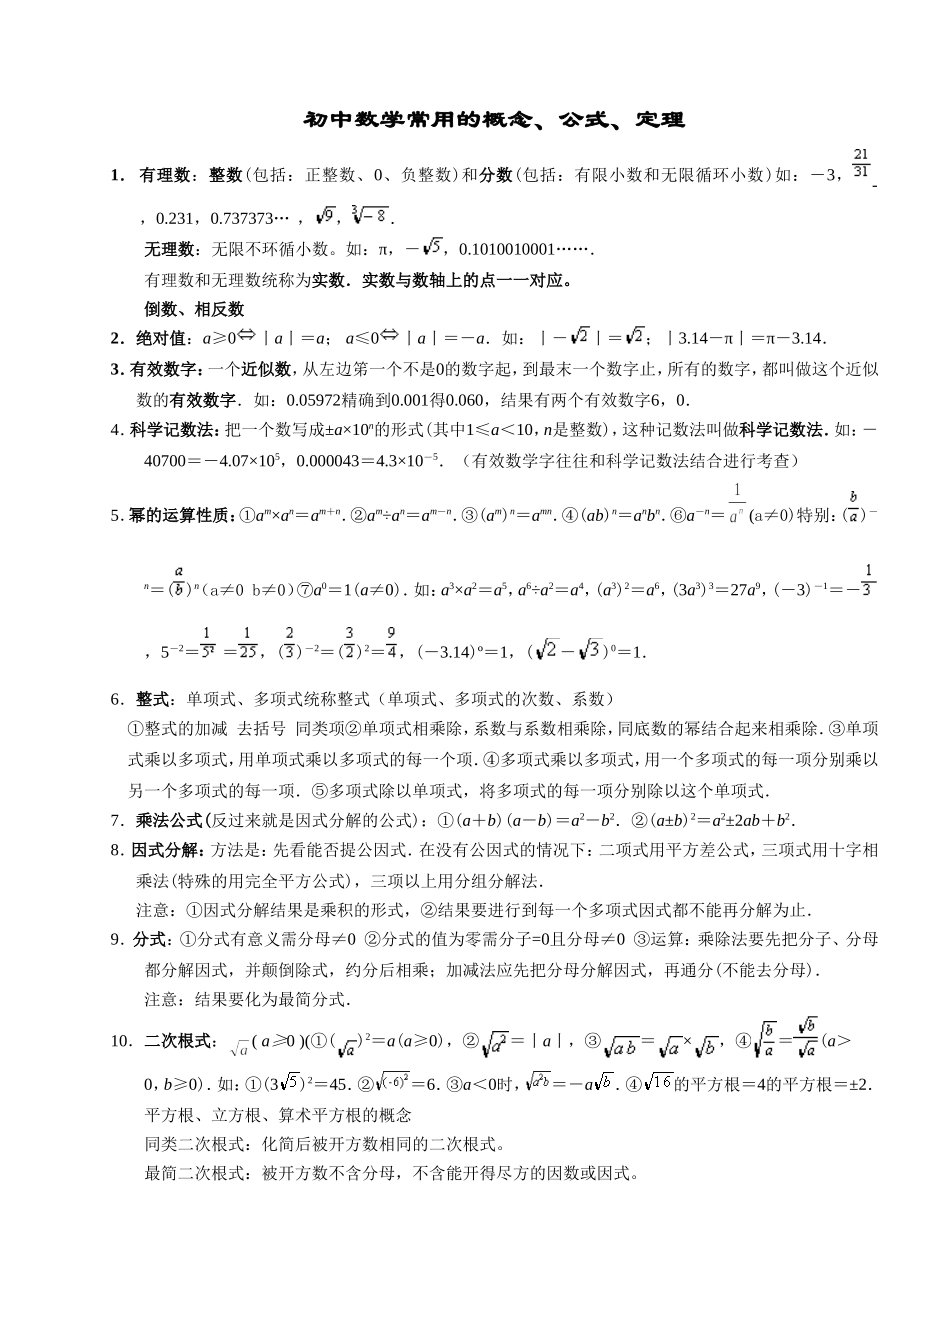 初中数学常用的概念、公式、定理
1． 有理数：整数(包括：正整数、0、负整数)和分数(包括：有限小数和无限循环小数)如：－3，21/31
，0.231，0.737373…，√9，³√－8．
无理数：无限不环循小数。如：π，－√5，0.1010010001……．
有理数和无理数统称为实数．实数与数轴上的点一一对应。
倒数、相反数
2．绝对值：a≥0⇔丨a丨＝a；a≤0⇔丨a丨＝－a．如：丨－√2丨＝√2；丨3.14－π丨＝π－3.14．
3．有效数字：一个近似数，从左边笫一个不是0的数字起，到最末一个数字止，所有的数字，都叫做这个近似
数的有效数字．如：0.05972精确到0.001得0.060，结果有两个有效数字6，0．
4．科学记数法：把一个数写成±a×10ⁿ的形式(其中1≤a＜10，n是整数)，这种记数法叫做科学记数法．如：－
40700＝－4.07×10⁵，0.000043＝4.3×10⁻⁵．（有效数学字往往和科学记数法结合进行考查）
5．幂的运算性质：①aᵐ×aⁿ＝aᵐ⁺ⁿ．②aᵐ÷aⁿ＝aᵐ⁻ⁿ．③(aᵐ)ⁿ＝aᵐⁿ．④(ab)ⁿ＝aⁿbⁿ．⑥a⁻ⁿ＝1/aⁿ(a≠0)特别：(b/a)⁻
ⁿ＝(a/b)ⁿ(a≠0 b≠0)⑦a⁰＝1(a≠0)．如：a³×a²＝a⁵，a⁶÷a²＝a⁴，(a³)²＝a⁶，(3a³)³＝27a⁹，(－3)⁻¹＝－1/3
，5⁻²＝1/5²＝1/25，(2/3)⁻²＝(3/2)²＝9/4，(－3.14)º＝1，(√2－√3)⁰＝1．
6．整式：单项式、多项式统称整式（单项式、多项式的次数、系数）
①整式的加减 去括号 同类项②单项式相乘除，系数与系数相乘除，同底数的幂结合起来相乘除．③单项
式乘以多项式，用单项式乘以多项式的每一个项．④多项式乘以多项式，用一个多项式的每一项分别乘以
另一个多项式的每一项．⑤多项式除以单项式，将多项式的每一项分别除以这个单项式．
7．乘法公式(反过来就是因式分解的公式)：①(a＋b)(a－b)＝a²－b²．②(a±b)²＝a²±2ab＋b²．
8．因式分解：方法是：先看能否提公因式．在没有公因式的情况下：二项式用平方差公式，三项式用十字相
乘法(特殊的用完全平方公式)，三项以上用分组分解法．
注意：①因式分解结果是乘积的形式，②结果要进行到每一个多项式因式都不能再分解为止．
9．分式：①分式有意义需分母≠0 ②分式的值为零需分子=0且分母≠0 ③运算：乘除法要先把分子、分母
都分解因式，并颠倒除式，约分后相乘；加减法应先把分母分解因式，再通分(不能去分母)．
注意：结果要化为最简分式．
10．二次根式：√a ( a≥0 )(①(√a)²＝a(a≥0)，②√a²＝丨a丨，③√ab＝√a×√b，④√(b/a)＝√b/√a(a＞
0，b≥0)．如：①(3√5)²＝45．②√(-6)²＝6．③a＜0时，√a²b＝－a√b．④√16的平方根＝4的平方根＝±2．
平方根、立方根、算术平方根的概念
同类二次根式：化简后被开方数相同的二次根式。
最简二次根式：被开方数不含分母，不含能开得尽方的因数或因式。